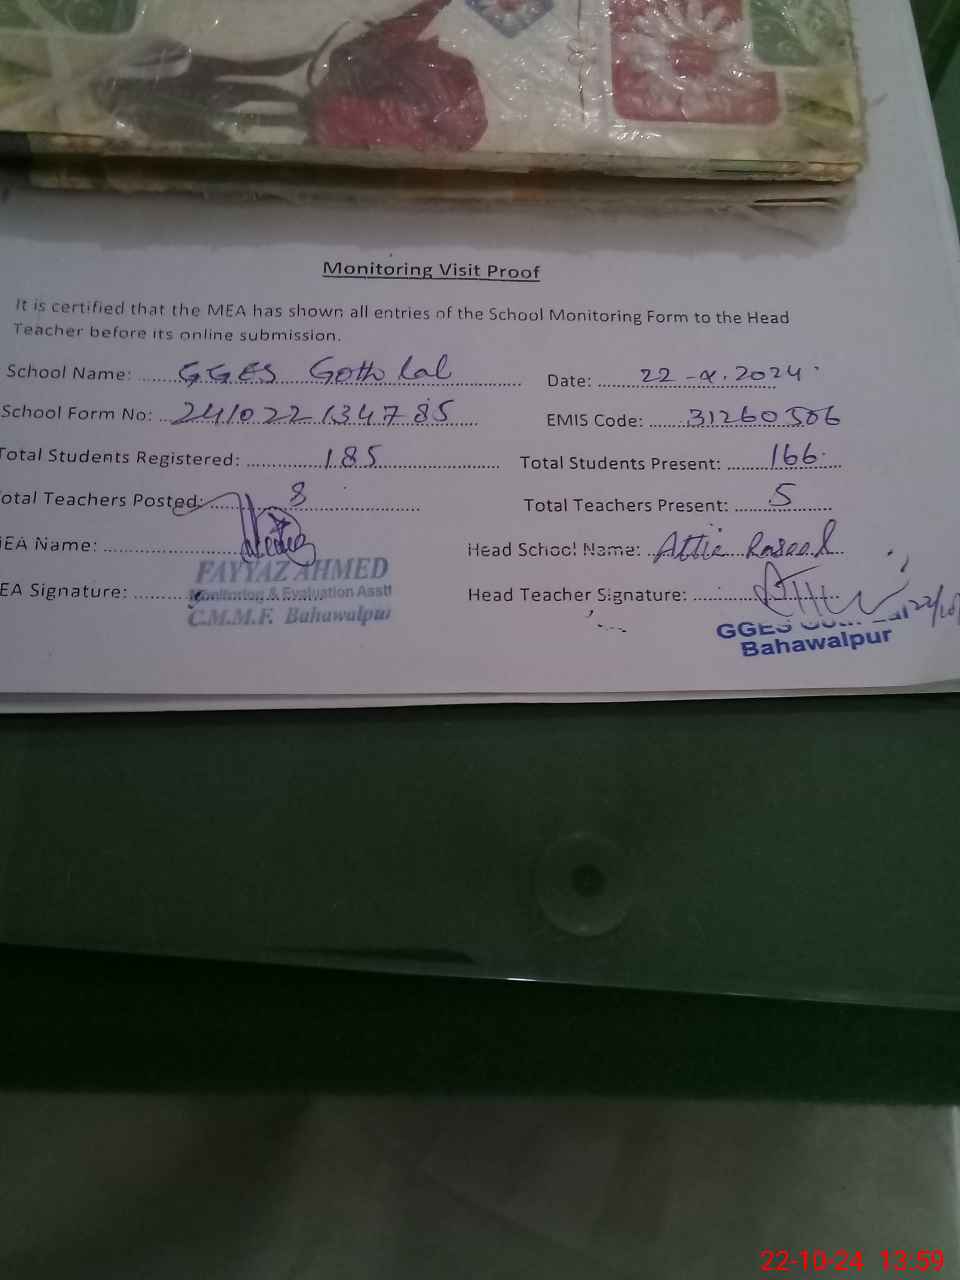 Monitoring Visit Proof
It is certified that the MEA has shown all entries of the School Monitoring Form to the Head
Teacher before its online submission.
School Name: GGES Goth Lal Date: 22-X-2024
School Form No: 241022134785 EMIS Code: 31260506
Total Students Registered: 185 Total Students Present: 166
otal Teachers Posted: 8 Total Teachers Present: 5
EA Name: Head School Name: Attia Rasool
FAYYAZ AHMED
EA Signature: Head Teacher Signature:
Monitoring & Evaluation Asstt
C.M.M.F. Bahawalpur
GGES
Bahawalpur
22-10-24 13:59